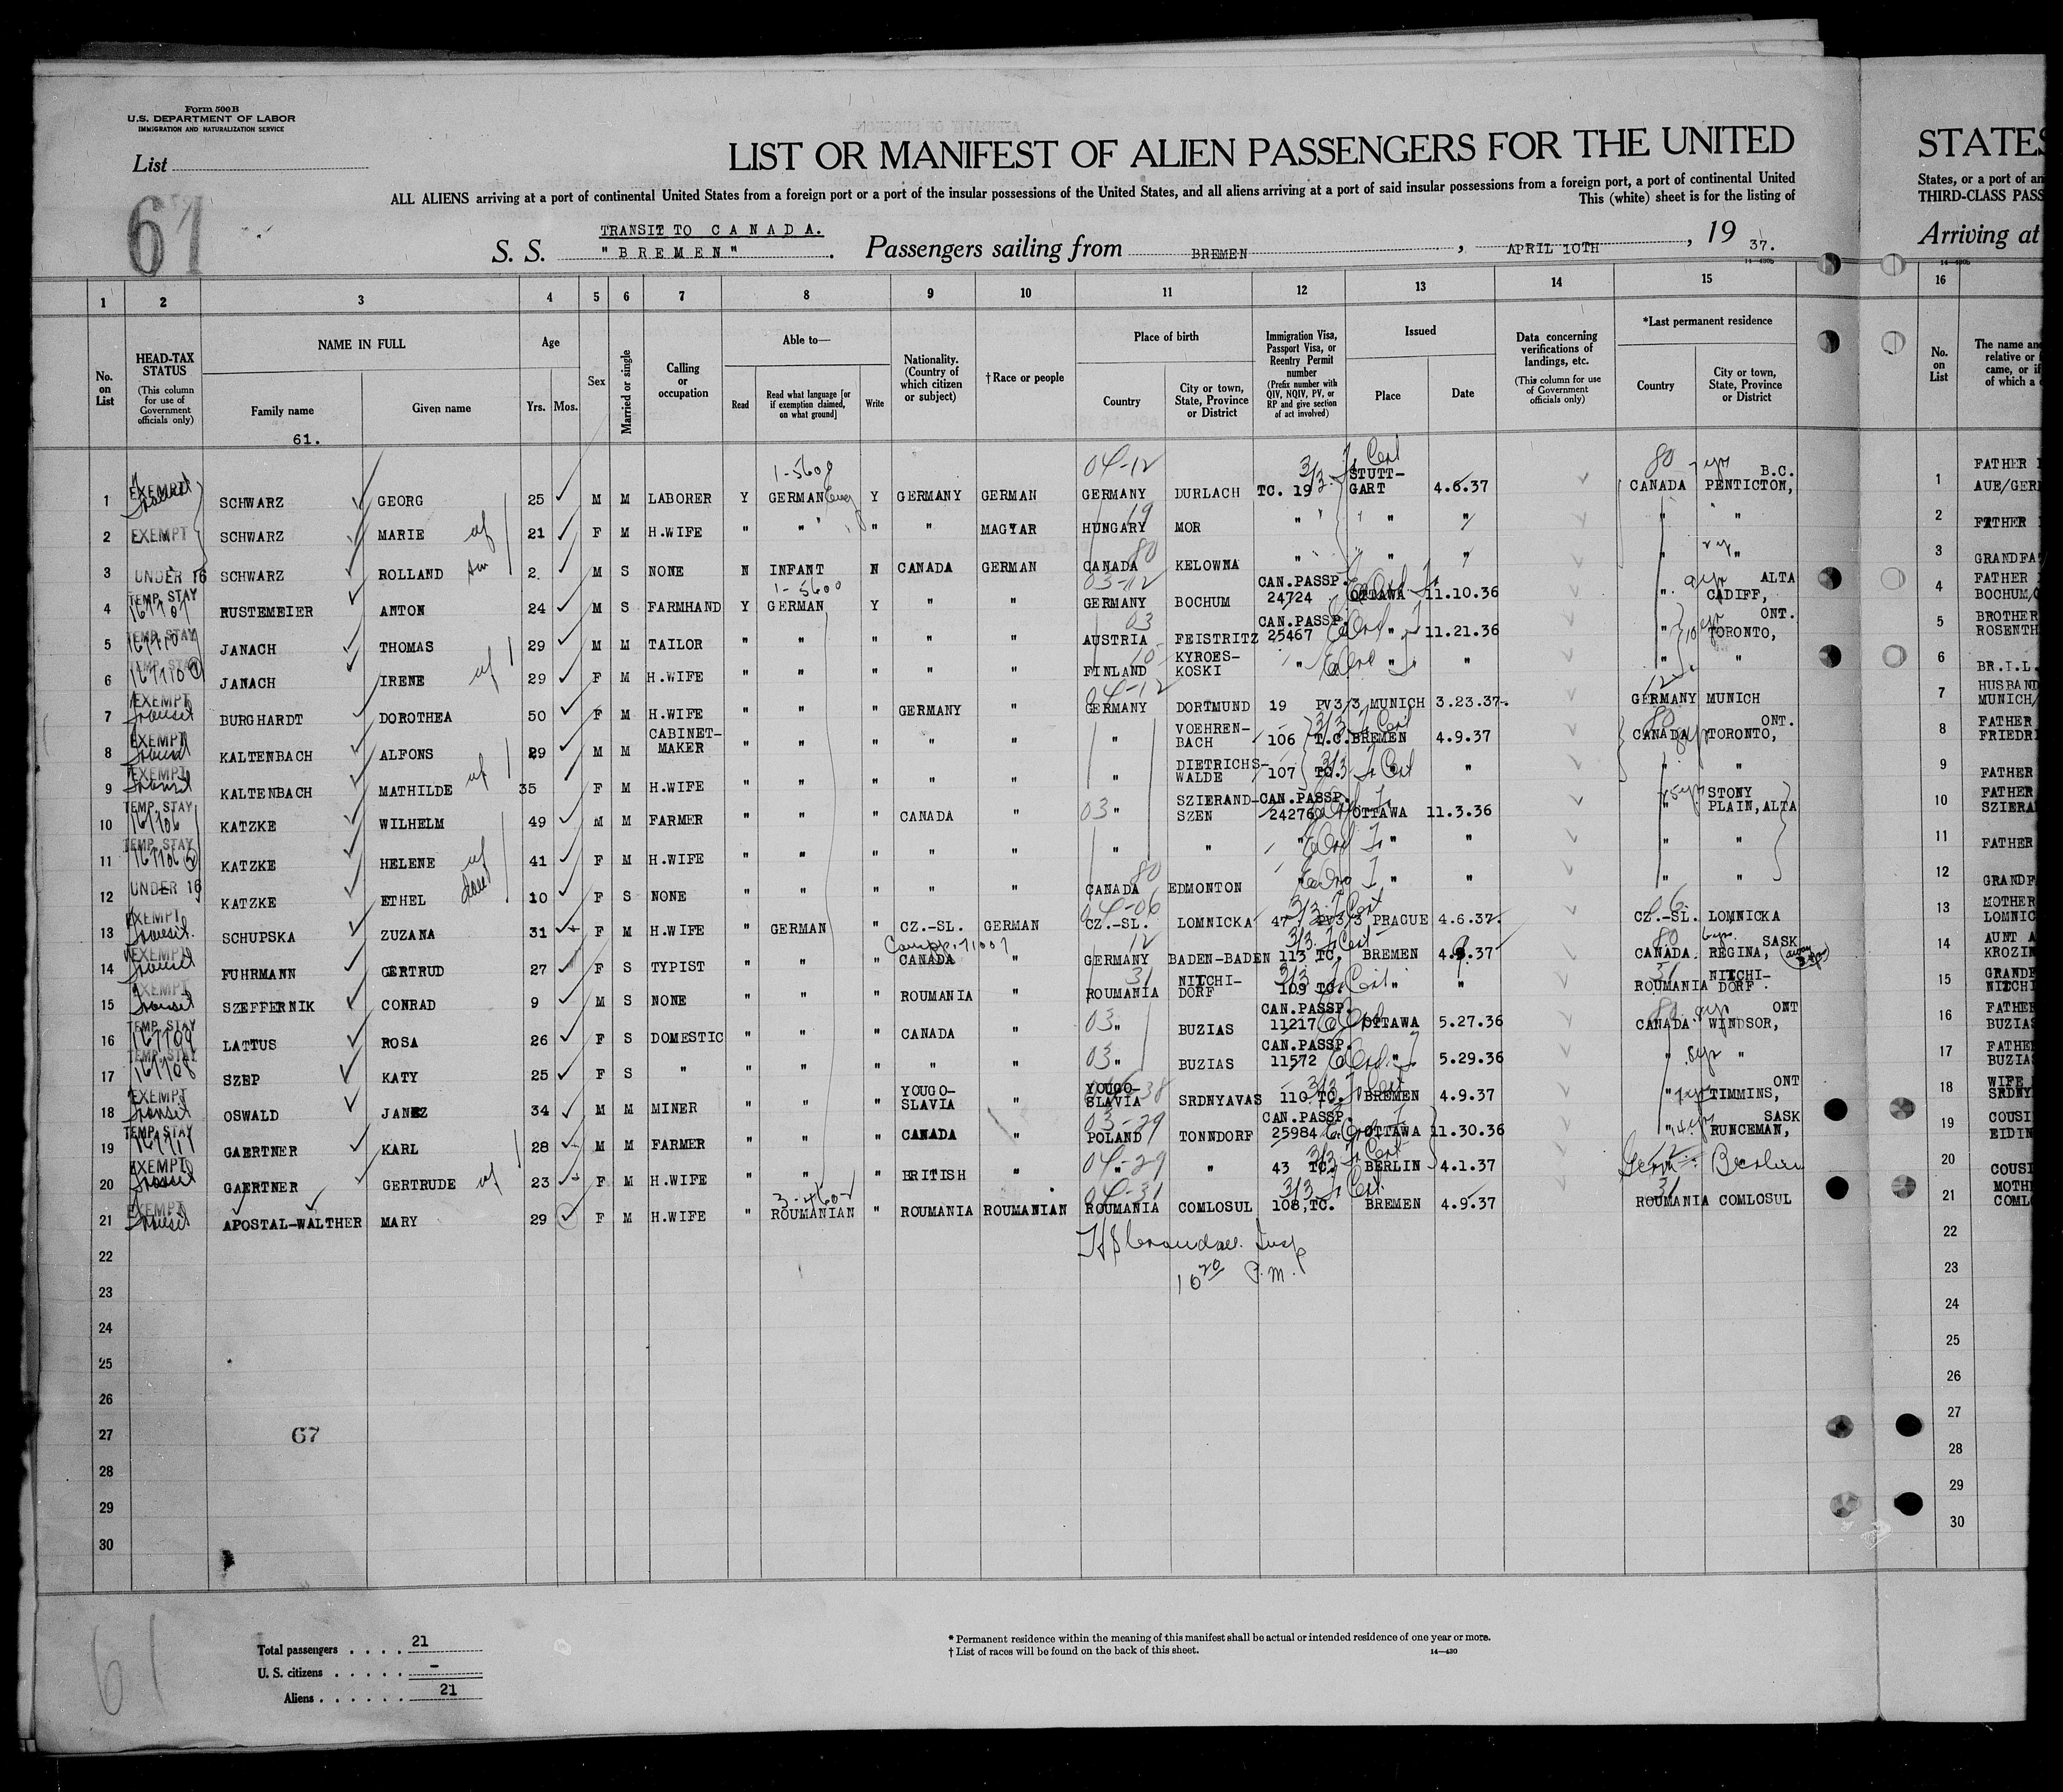 Form 500B
U.S. DEPARTMENT OF LABOR
IMMIGRATION AND NATURALIZATION SERVICE
List
61
LIST OR MANIFEST OF ALIEN PASSENGERS FOR THE UNITED
STATES
ALL ALIENS arriving at a port of continental United States from a foreign port or a port of the insular possessions of the United States, and all aliens arriving at a port of said insular possessions from a foreign port, a port of continental United
States, or a port of an
This (white) sheet is for the listing of
THIRD-CLASS PASS
TRANSIT TO CANADA.
S. S. "BREMEN". Passengers sailing from BREMEN, APRIL 10TH, 19 37.
Arriving at
14-430b
1 2 3 4 5 6 7 8 9 10 11 12 13 14 15 16
No. on List
HEAD-TAX STATUS (This column for use of Government officials only)
NAME IN FULL Family name Given name
Age Yrs. Mos.
Sex
Married or single
Calling or occupation
Able to— Read Read what language [or if exemption claimed, on what ground] Write
Nationality. (Country of which citizen or subject)
†Race or people
Place of birth Country City or town, State, Province or District
Immigration Visa, Passport Visa, or Reentry Permit number (Prefix number with QIV, NQIV, PV, or RP and give section of act involved)
Issued Place Date
Data concerning verifications of landings, etc. (This column for use of Government officials only)
*Last permanent residence Country City or town, State, Province or District
No. on List
The name an
relative or
came, or if
of which a
61.
1 EXEMPT SCHWARZ GEORG 25 M M LABORER Y GERMAN Eng Y GERMANY GERMAN GERMANY DURLACH TC. 19 STUTT-GART 4.6.37 CANADA B.C. PENTICTON, 1 FATHER AUE/GER
2 EXEMPT SCHWARZ MARIE wf 21 F M H.WIFE " " " " MAGYAR HUNGARY MOR " " " " " 2 FATHER
3 UNDER 16 SCHWARZ ROLLAND 2 M S NONE N INFANT N CANADA GERMAN CANADA KELOWNA " " " " " 3 GRANDFA
4 TEMP. STAY 167707 RUSTEMEIER ANTON 24 M S FARMHAND Y GERMAN Y " " GERMANY BOCHUM CAN.PASSP. 24724 OTTAWA 11.10.36 " ALTA CADIFF, 4 FATHER BOCHUM/
5 TEMP. STAY JANACH THOMAS 29 M M TAILOR " " " " " AUSTRIA FEISTRITZ CAN.PASSP. 25467 " 11.21.36 " ONT. TORONTO, 5 BROTHER ROSENTH
6 TEMP. STAY JANACH IRENE wf 29 F M H.WIFE " " " " " FINLAND KYROES-KOSKI " " " " " 6 BR.I.L.
7 EXEMPT transit BURGHARDT DOROTHEA 50 F M H.WIFE " " " GERMANY " GERMANY DORTMUND 19 PV3/3 MUNICH 3.23.37. GERMANY MUNICH 7 HUSBAND MUNICH/
8 EXEMPT transit KALTENBACH ALFONS 29 M M CABINET-MAKER " " " " " " VOEHREN-BACH 106 T.C. BREMEN 4.9.37 CANADA ONT. TORONTO, 8 FATHER FRIEDRI
9 EXEMPT transit KALTENBACH MATHILDE wf 35 F M H.WIFE " " " " " " DIETRICHS-WALDE 107 TC. " " " " 9 FATHER
10 TEMP. STAY 167706 KATZKE WILHELM 49 M M FARMER " " " CANADA " " SZIERAND-SZEN CAN.PASSP. 24276 OTTAWA 11.3.36 " STONY PLAIN,ALTA 10 FATHER SZIERA
11 TEMP. STAY 167706 KATZKE HELENE wf 41 F M H.WIFE " " " " " " " " " " " " 11 FATHER
12 UNDER 16 KATZKE ETHEL dau 10 F S NONE " " " " " CANADA EDMONTON " " " " " 12 GRANDF
13 EXEMPT transit SCHUPSKA ZUZANA 31 F M H.WIFE " GERMAN " CZ.-SL. GERMAN CZ.-SL. LOMNICKA 47 PV3/3 PRAGUE 4.6.37. CZ.-SL. LOMNICKA 13 MOTHER LOMNIC
14 EXEMPT transit FUHRMANN GERTRUD 27 F S TYPIST " " " CANADA " GERMANY BADEN-BADEN 113 TC. BREMEN 4.9.37 CANADA. SASK REGINA, 14 AUNT KROZIN
15 EXEMPT transit SZEFFERNIK CONRAD 9 M S NONE " " " ROUMANIA " ROUMANIA NITCHI-DORF 109 TC. " " ROUMANIA NITCHI-DORF. 15 GRANDF NITCHI
16 TEMP. STAY 167709 LATTUS ROSA 26 F S DOMESTIC " " " CANADA " " BUZIAS CAN.PASSP. 11217 OTTAWA 5.27.36 CANADA. ONT WINDSOR, 16 FATHER BUZIAS
17 TEMP. STAY 167708 SZEP KATY 25 F S " " " " " " " BUZIAS CAN.PASSP. 11572 " 5.29.36 " " 17 FATHER BUZIAS
18 EXEMPT transit OSWALD JANEZ 34 M M MINER " " " YOUGO-SLAVIA " YOUGO-SLAVIA SRDNYAVAS 110 TC. BREMEN 4.9.37 " ONT TIMMINS, 18 WIFE SRDNY
19 TEMP. STAY GAERTNER KARL 28 M M FARMER " " " CANADA " POLAND TONNDORF CAN.PASSP. 25984 OTTAWA 11.30.36 " SASK RUNCEMAN, 19 COUSI EIDIN
20 EXEMPT transit GAERTNER GERTRUDE wf 23 F M H.WIFE " " " BRITISH " " " 43 TC. BERLIN 4.1.37 Berlin 20 COUSI
21 EXEMPT transit APOSTAL-WALTHER MARY 29 F M H.WIFE " ROUMANIAN " ROUMANIA ROUMANIAN ROUMANIA COMLOSUL 108,TC. BREMEN 4.9.37 ROUMANIA COMLOSUL 21 MOTH COMLO
22 22
10 20 P.M.
23 23
24 24
25 25
26 26
27 67 27
28 28
29 29
30 30
61
Total passengers . . . . 21
U. S. citizens . . . . . –
Aliens . . . . . . 21
* Permanent residence within the meaning of this manifest shall be actual or intended residence of one year or more.
† List of races will be found on the back of this sheet. 14-430